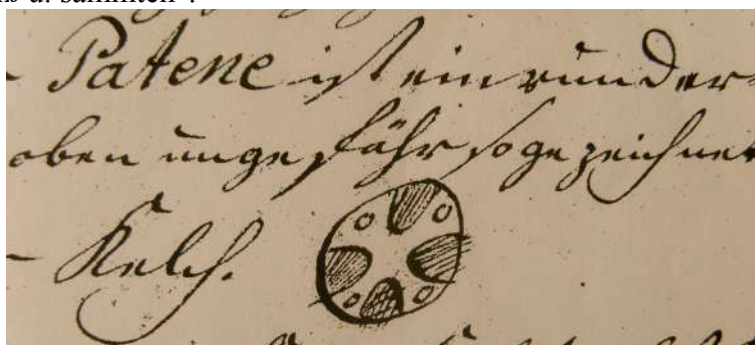 u. sammten".
- Patene ist ein runder
oben ungefähr so gezeichnet
- Kelch.